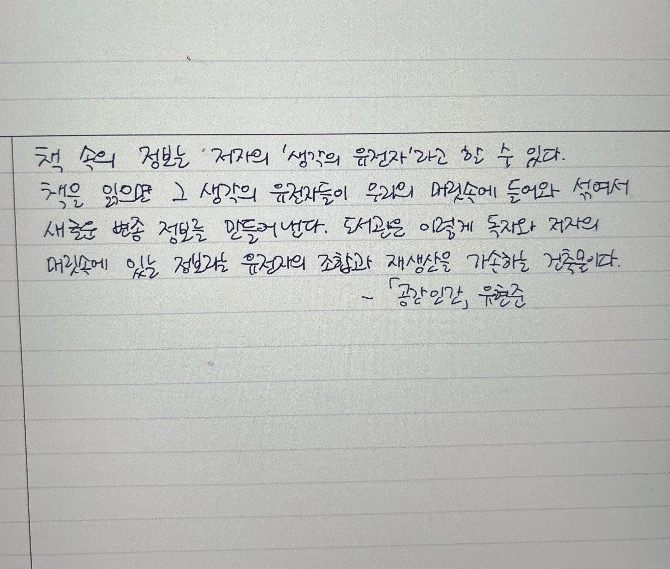 책 속의 정보는 저자의 '생각의 유전자'라고 할 수 있다.
책을 읽으면 그 생각의 유전자들이 우리의 머릿속에 들어와 섞여서
새로운 변종 정보를 만들어 낸다. 도서관은 이렇게 독자와 저자의
머릿속에 있는 정보라는 유전자의 조합과 재생산을 가속하는 건축물이다.
- 「공간 인간」, 유현준